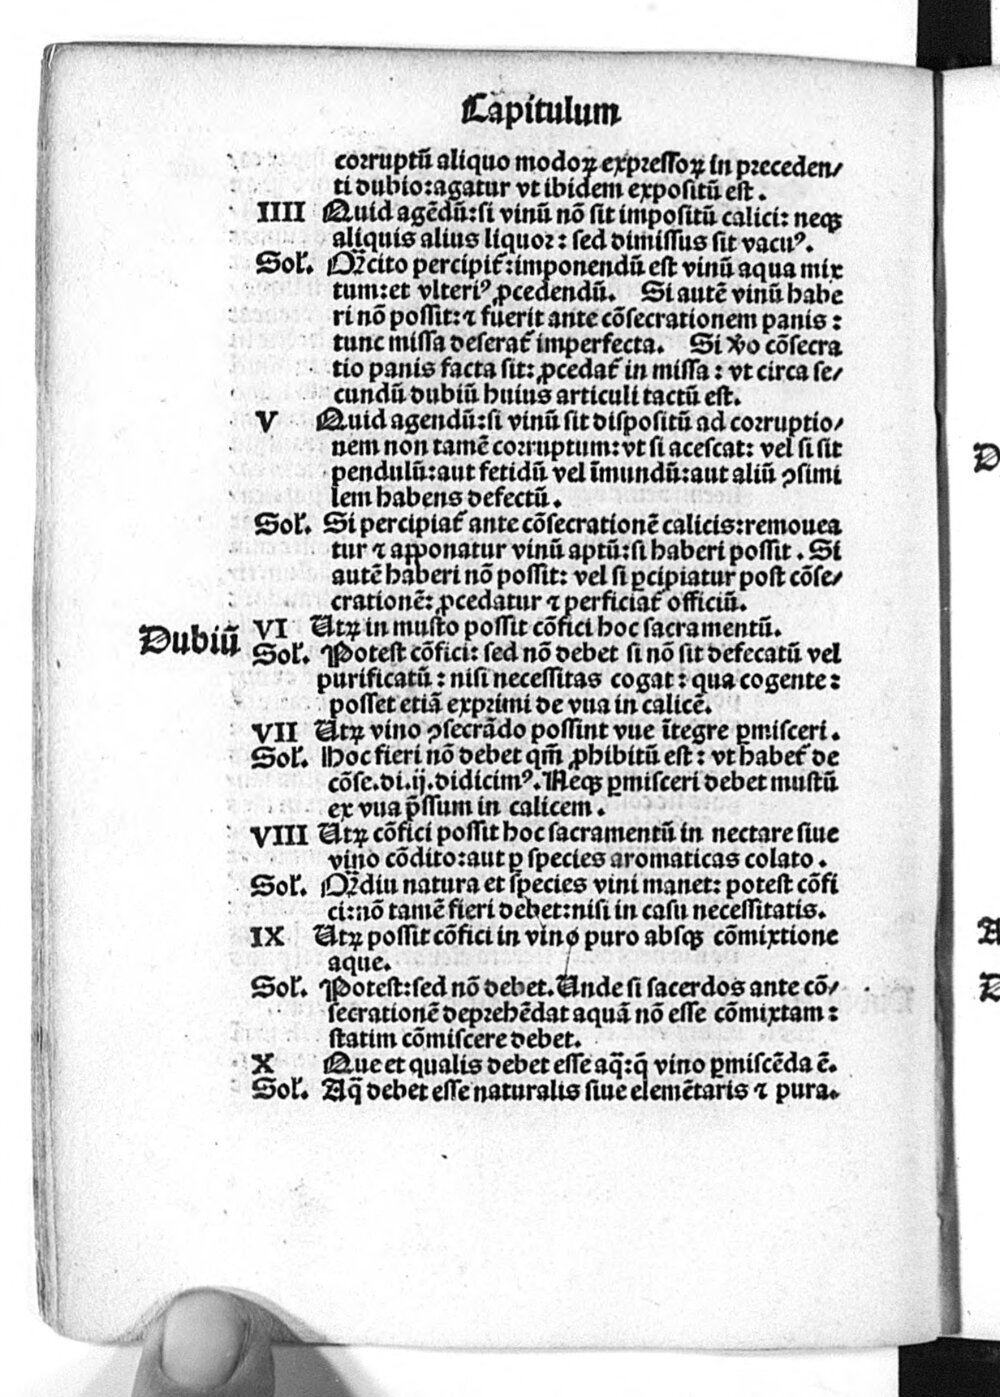 Capitulum
corruptū aliquo modoꝝ expressoꝝ in preceden/
ti dubio:agatur vt ibidem expositū est.
IIII Quid agēdū:si vinū nō sit impositū calici: neqꝫ
aliquis alius liquor: sed dimissus sit vacuꝰ.
Sol'. Qn̄cito percipit̄:imponendū est vinū aqua mix
tum:et vlteriꝰ ꝓcedendū. Si autē vinū habe
ri nō possit: ⁊ fuerit ante cōsecrationem panis:
tunc missa deserat̄ imperfecta. Si v̄o cōsecra
tio panis facta sit: ꝓcedat̄ in missa: vt circa se/
cundū dubiū huius articuli tactū est.
V Quid agendū:si vinū sit dispositū ad corruptio/
nem non tamē corruptum:vt si acescat: vel si sit
pendulū:aut fetidū vel īmundū:aut aliū ꝯsimi
lem habens defectū.
Sol'. Si percipiat̄ ante cōsecrationē calicis:remouea
tur ⁊ apponatur vinū aptū:si haberi possit. Si
autē haberi nō possit: vel si ꝑcipiatur post cōse/
crationē: ꝓcedatur ⁊ perficiat̄ officiū.
Dubiū VI Utꝝ in musto possit cōfici hoc sacramentū.
Sol'. Potest cōfici: sed nō debet si nō sit defecatū vel
purificatū: nisi necessitas cogat: qua cogente:
posset etiā exprimi de vua in calicē.
VII Utꝝ vino ꝯsecrādo possint vue ītegre ꝑmisceri.
Sol'. Hoc fieri nō debet qm̄ ꝓhibitū est: vt habet̄ de
cōse.di.ij.didicimꝰ. Neqꝫ ꝑmisceri debet mustū
ex vua p̄ssum in calicem.
VIII Utꝝ cōfici possit hoc sacramentū in nectare siue
vino cōdito:aut ꝑ species aromaticas colato.
Sol'. Qm̄diu natura et species vini manet: potest cōfi
ci:nō tamē fieri debet:nisi in casu necessitatis.
IX Utꝝ possit cōfici in vino puro absqꝫ cōmixtione
aque.
Sol'. Potest:sed nō debet. Unde si sacerdos ante cō/
secrationē deprehēdat aquā nō esse cōmixtam:
statim cōmiscere debet.
X Que et qualis debet esse aq̄:q̄ vino ꝑmiscēda ē.
Sol'. Aq̄ debet esse naturalis siue elemētaris ⁊ pura.